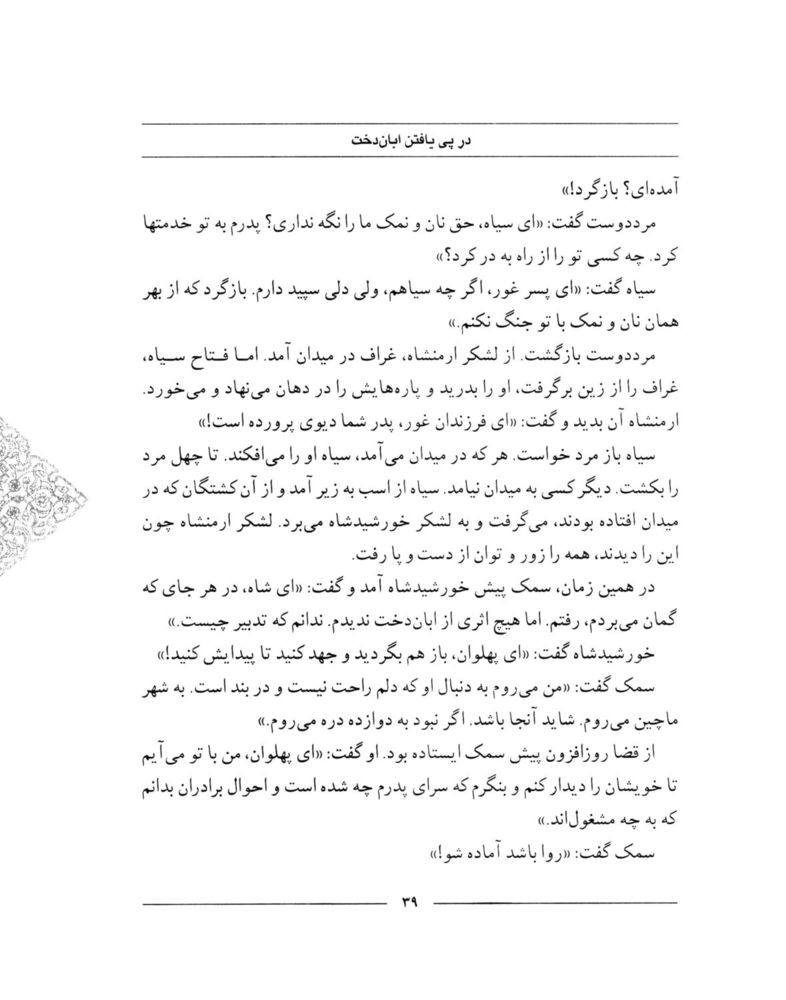 در پی یافتن ابان‌دخت
آمده‌ای؟ بازگرد!»
مرددوست گفت: «ای سیاه، حق نان و نمک ما را نگه نداری؟ پدرم به تو خدمتها
کرد. چه کسی تو را از راه به در کرد؟»
سیاه گفت: «ای پسر غور، اگر چه سیاهم، ولی دلی سپید دارم. بازگرد که از بهر
همان نان و نمک با تو جنگ نکنم.»
مرددوست بازگشت. از لشکر ارمنشاه، غراف در میدان آمد. اما فتاح سیاه،
غراف را از زین برگرفت، او را بدرید و پاره‌هایش را در دهان می‌نهاد و می‌خورد.
ارمنشاه آن بدید و گفت: «ای فرزندان غور، پدر شما دیوی پرورده است!»
سیاه باز مرد خواست. هر که در میدان می‌آمد، سیاه او را می‌افکند. تا چهل مرد
را بکشت. دیگر کسی به میدان نیامد. سیاه از اسب به زیر آمد و از آن کشتگان که در
میدان افتاده بودند، می‌گرفت و به لشکر خورشیدشاه می‌برد. لشکر ارمنشاه چون
این را دیدند، همه را زور و توان از دست و پا رفت.
در همین زمان، سمک پیش خورشیدشاه آمد و گفت: «ای شاه، در هر جای که
گمان می‌بردم، رفتم. اما هیچ اثری از ابان‌دخت ندیدم. ندانم که تدبیر چیست.»
خورشیدشاه گفت: «ای پهلوان، باز هم بگردید و جهد کنید تا پیدایش کنید!»
سمک گفت: «من می‌روم به دنبال او که دلم راحت نیست و در بند است. به شهر
ماچین می‌روم. شاید آنجا باشد. اگر نبود به دوازده دره می‌روم.»
از قضا روزافزون پیش سمک ایستاده بود. او گفت: «ای پهلوان، من با تو می‌آیم
تا خویشان را دیدار کنم و بنگرم که سرای پدرم چه شده است و احوال برادران بدانم
که به چه مشغول‌اند.»
سمک گفت: «روا باشد آماده شو!»
۳۹